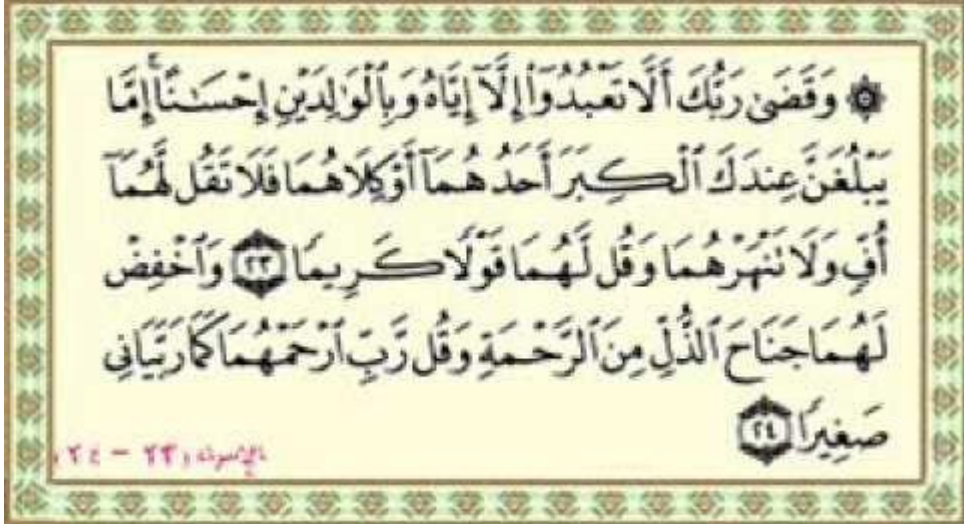 ۞ وَقَضَىٰ رَبُّكَ أَلَّا تَعْبُدُوٓا۟ إِلَّآ إِيَّاهُ وَبِٱلْوَٰلِدَيْنِ إِحْسَـٰنًا ۚ إِمَّا
يَبْلُغَنَّ عِندَكَ ٱلْكِبَرَ أَحَدُهُمَآ أَوْ كِلَاهُمَا فَلَا تَقُل لَّهُمَآ
أُفٍّ وَلَا تَنْهَرْهُمَا وَقُل لَّهُمَا قَوْلًا كَرِيمًا ٢٣ وَٱخْفِضْ
لَهُمَا جَنَاحَ ٱلذُّلِّ مِنَ ٱلرَّحْمَةِ وَقُل رَّبِّ ٱرْحَمْهُمَا كَمَا رَبَّيَانِى
صَغِيرًا ٢٤
٢٣ - ٢٤